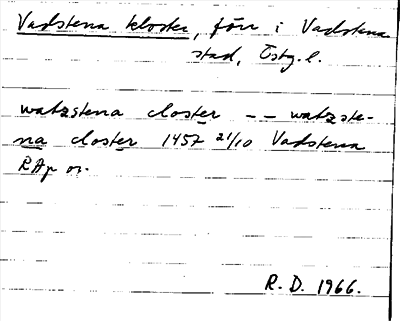 Vadstena kloster, förr i Vadstena
stad, Östg. l.
watzstena closter -- watzste-
na closter 1457 21/10 Vadstena
RAp or.
R. D. 1966.